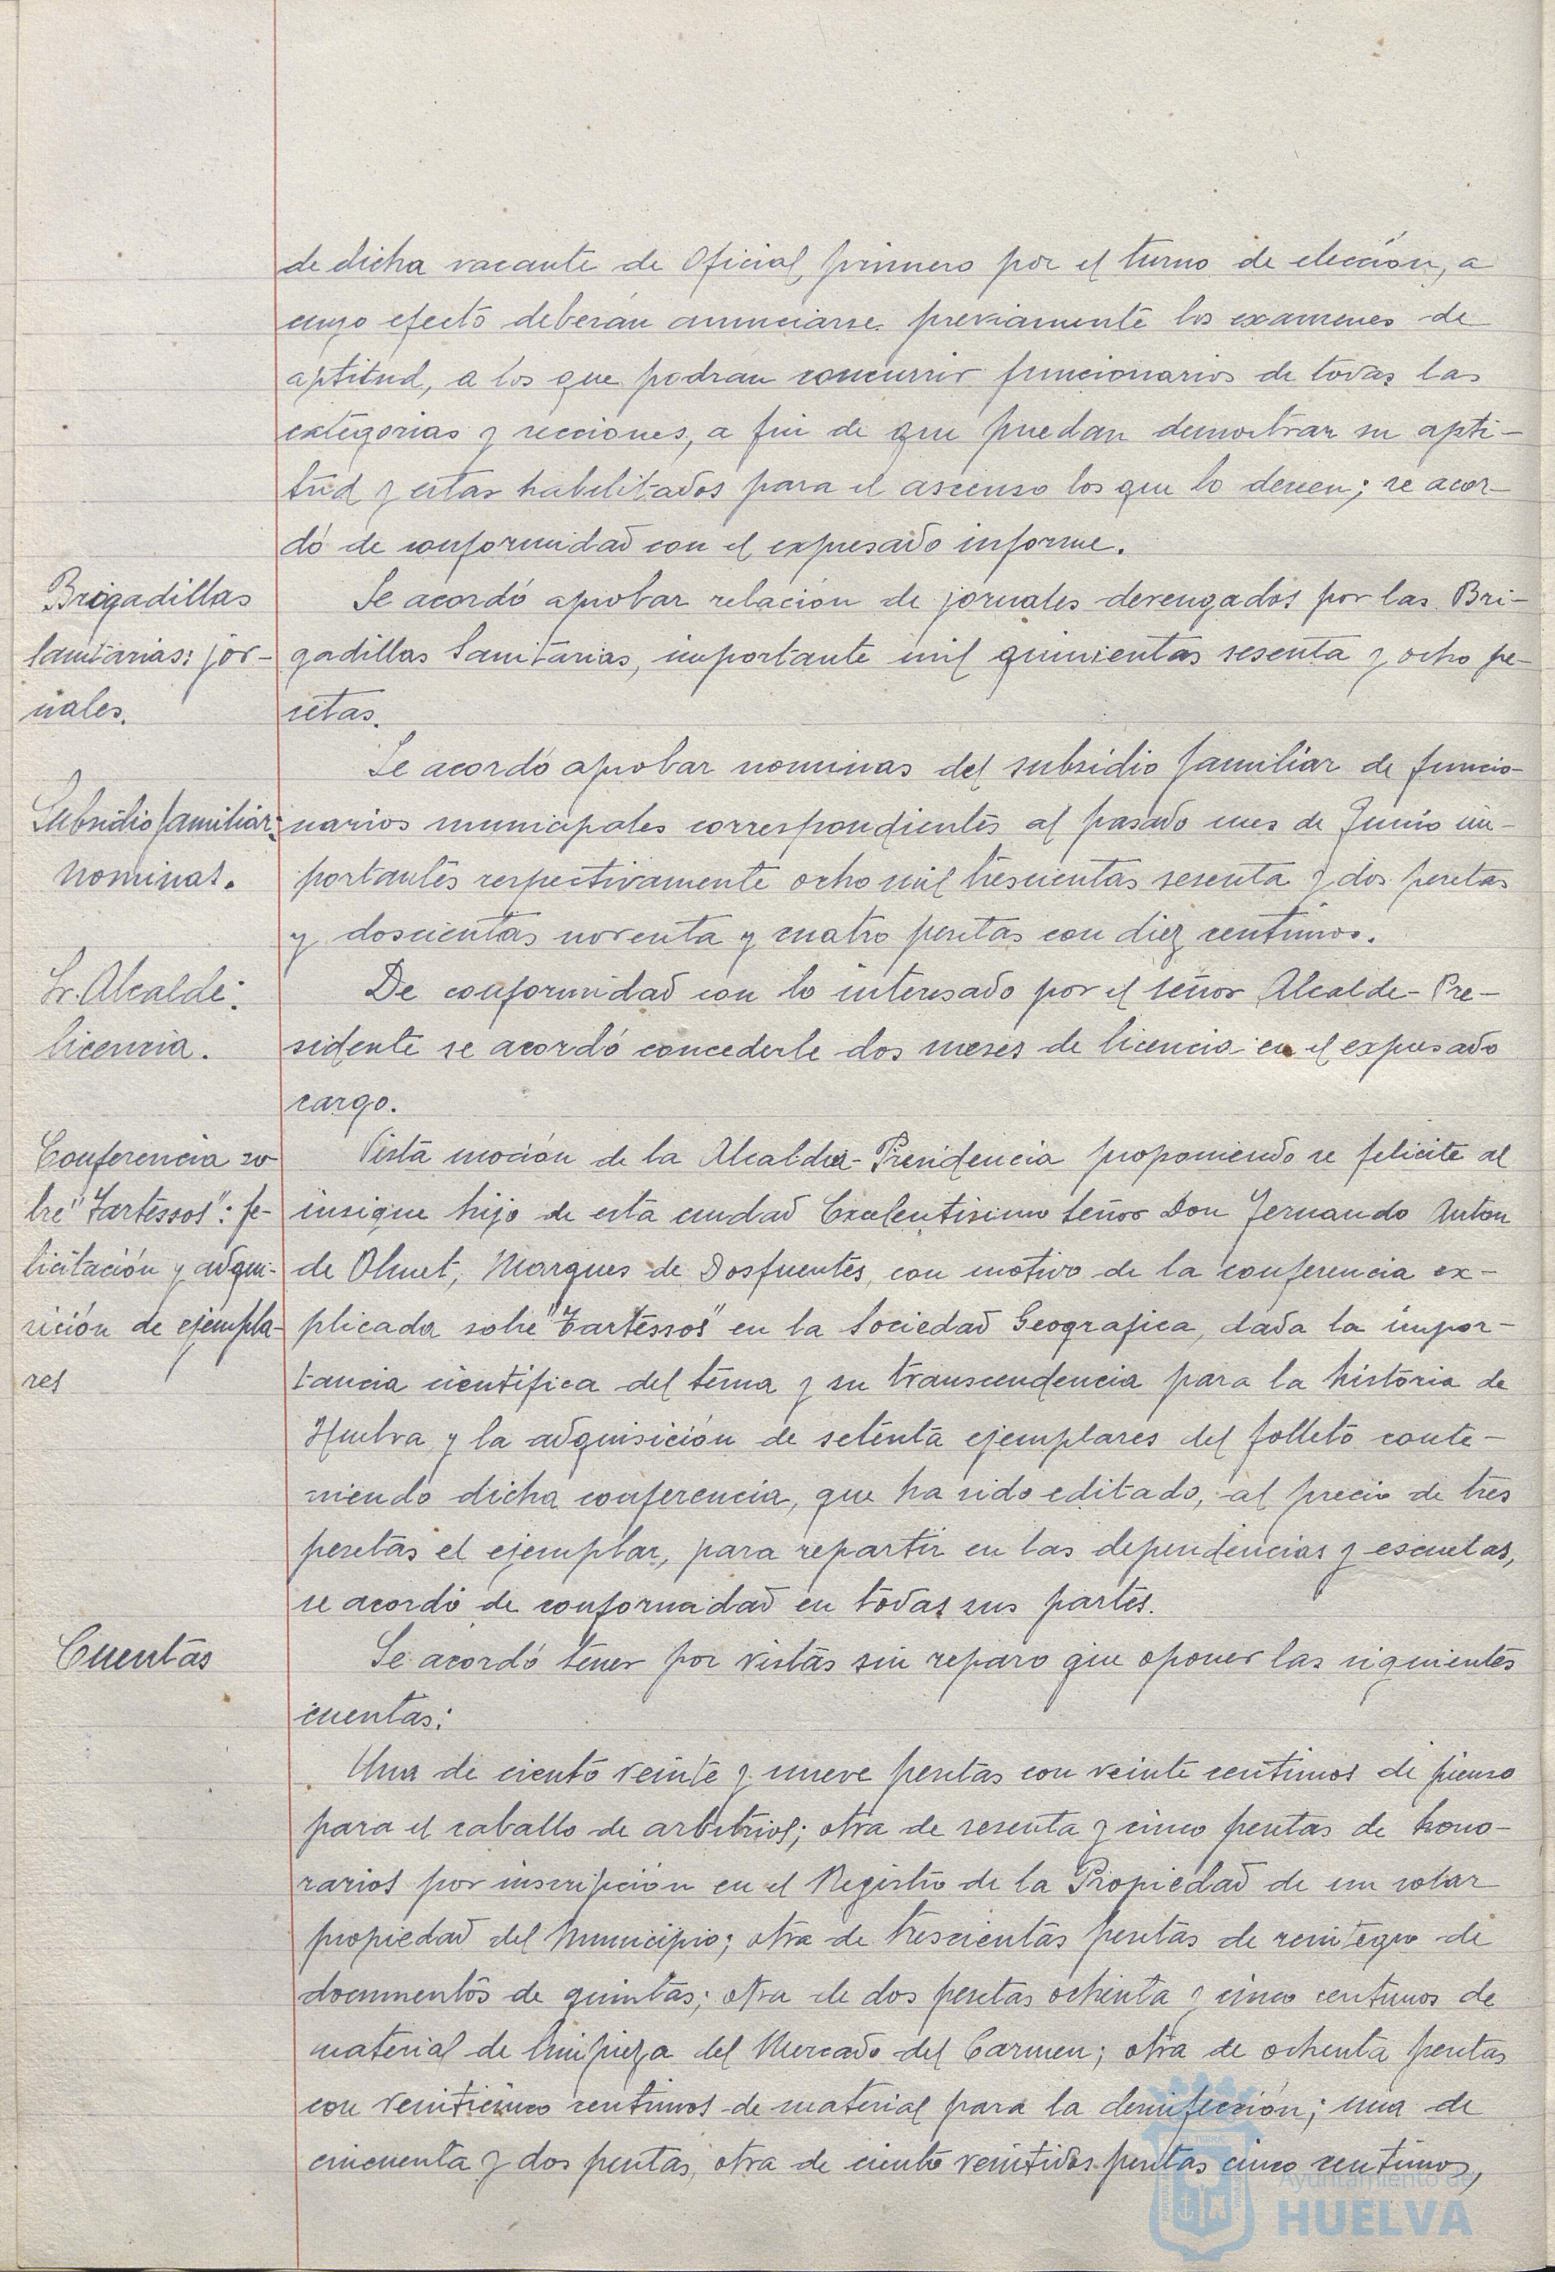 de dicha vacante de Oficial primero por el turno de elección, a
cuyo efecto deberán anunciarse previamente los examenes de
aptitud, a los que podran concurrir funcionarios de todas las
categorias y secciones, a fin de que puedan demostrar su apti-
tud y estar habilitados para el ascenso los que lo deseen; se acor-
dó de conformidad con el expresado informe.
Brigadillas
Sanitarias: jor-
nales.
Se acordó aprobar relación de jornales devengados por las Bri-
gadillas Sanitarias, importante mil quinientas sesenta y ocho pe-
setas.
Subsidio familiar:
nominas.
Se acordó aprobar nominas del subsidio familiar de funcio-
narios municipales correspondientes al pasado mes de Junio im-
portantes respectivamente ocho mil trescientas sesenta y dos pesetas
y doscientas noventa y cuatro pesetas con diez centimos.
Sr. Alcalde:
licencia.
De conformidad con lo interesado por el señor Alcalde-Pre-
sidente se acordó concederle dos meses de licencia en el expresado
cargo.
Conferencia so
bre "Tartessos": fe-
licitación y adqui-
sición de ejempla-
res
Vista moción de la Alcaldia-Presidencia proponiendo se felicite al
insigne hijo de esta ciudad Excelentisimo señor Don Fernando Anton
de Olmet, Marques de Dosfuentes, con motivo de la conferencia ex-
plicada sobre "Tartessos" en la Sociedad Geografica, dada la impor-
tancia cientifica del tema y su transcendencia para la historia de
Huelva y la adquisición de setenta ejemplares del folleto conte-
niendo dicha conferencia, que ha sido editado, al precio de tres
pesetas el ejemplar, para repartir en las dependencias y escuelas,
se acordó de conformidad en todas sus partes.
Cuentas
Se acordó tener por vistas sin reparo que oponer las siguientes
cuentas:
Una de ciento veinte y nueve pesetas con veinte centimos de pienso
para el caballo de arbitrios; otra de sesenta y cinco pesetas de hono-
rarios por inscripción en el Registro de la Propiedad de un solar
propiedad del Municipio; otra de trescientas pesetas de reintegro de
documentos de quintas; otra de dos pesetas ochenta y cinco centimos de
material de limpieza del Mercado del Carmen; otra de ochenta pesetas
con veinticinco centimos de material para la desinfección; una de
cincuenta y dos pesetas, otra de ciento veintidos pesetas cinco centimos,
Ayuntamiento de
HUELVA